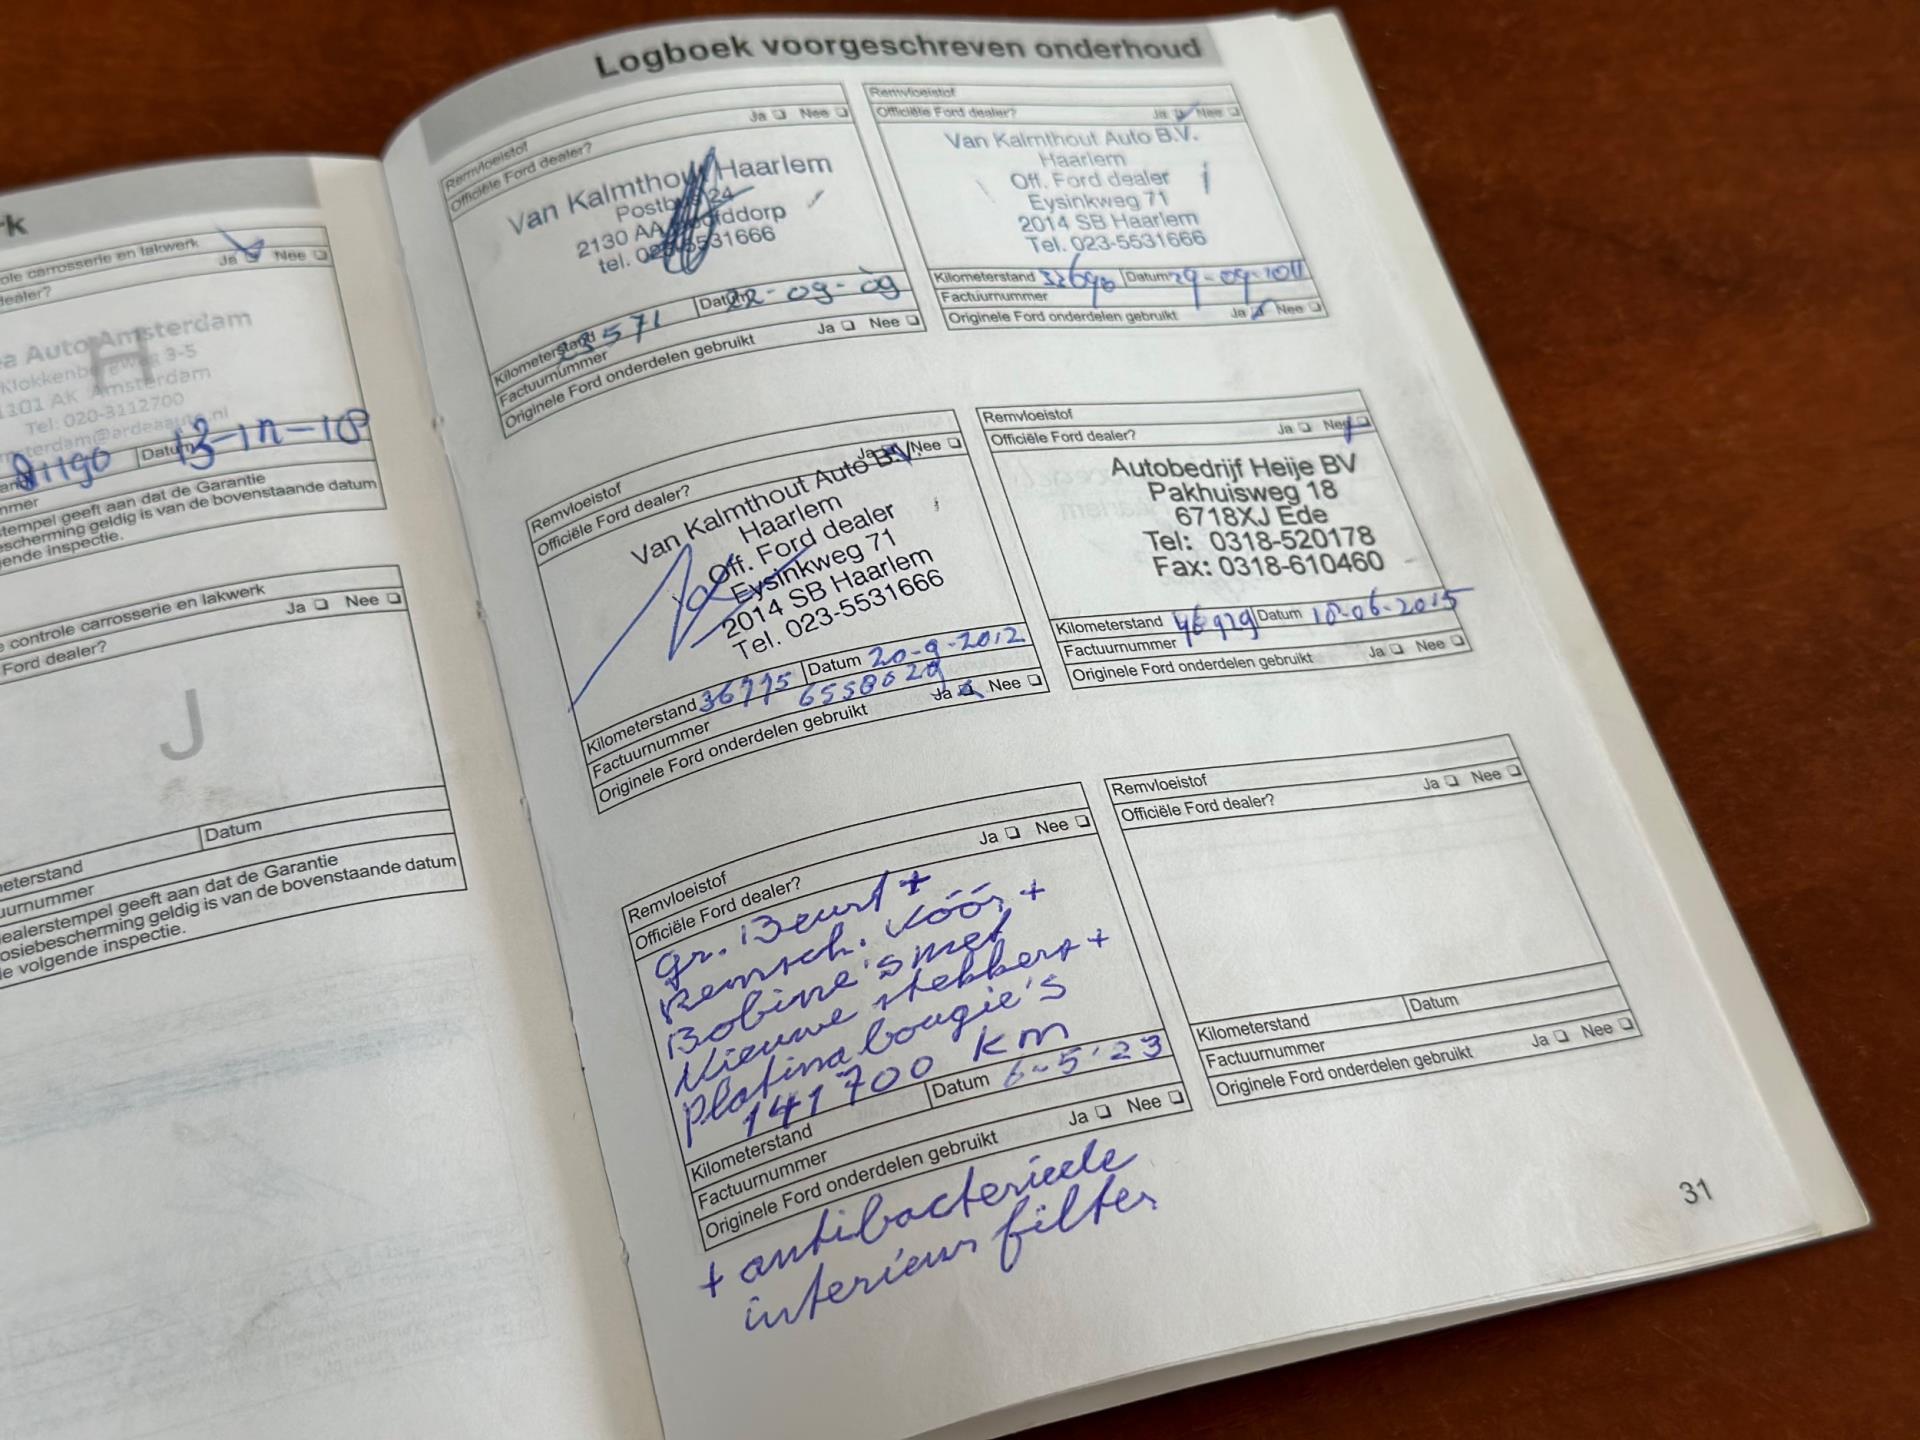 Logboek voorgeschreven onderhoud
rk
ole carrosserie en lakwerk
dealer?
Ja Nee
H
a Auto Amsterdam
3-5
1101 AK Amsterdam
Tel: 020-3112700
Datum 13-12-18
mmer
stempel geeft aan dat de Garantie
escherming geldig is van de bovenstaande datum
ende inspectie.
controle carrosserie en lakwerk
Ford dealer?
Ja Nee
J
Datum
meterstand
uurnummer
ealerstempel geeft aan dat de Garantie
osiebescherming geldig is van de bovenstaande datum
de volgende inspectie.
Remvloeistof
Officiële Ford dealer?
Ja Nee
Van Kalmthout Haarlem
2130 AA
tel. 023-5531666
Kilometerstand 23571
Datum 22-09-09
Factuurnummer
Originele Ford onderdelen gebruikt Ja Nee
Remvloeistof
Officiële Ford dealer? Ja Nee
Van Kalmthout Auto B.V.
Haarlem
Off. Ford dealer
Eysinkweg 71
2014 SB Haarlem
Tel. 023-5531666
Kilometerstand 32690 Datum 29-09-2011
Factuurnummer
Originele Ford onderdelen gebruikt Ja Nee
Remvloeistof
Officiële Ford dealer? Ja Nee
Van Kalmthout Auto B.V.
Haarlem
Off. Ford dealer
Eysinkweg 71
2014 SB Haarlem
Tel. 023-5531666
Kilometerstand 36775 Datum 20-9-2012
Factuurnummer 6558629
Originele Ford onderdelen gebruikt Ja Nee
Remvloeistof
Officiële Ford dealer? Ja Nee
Autobedrijf Heije BV
Pakhuisweg 18
6718XJ Ede
Tel: 0318-520178
Fax: 0318-610460
Kilometerstand 46929 Datum 18-06-2015
Factuurnummer
Originele Ford onderdelen gebruikt Ja Nee
Remvloeistof
Officiële Ford dealer? Ja Nee
gr. Beurt +
Remsch. vóór +
Bobine's met
Nieuwe stekkers +
Platina bougie's
141700 km
Kilometerstand Datum 6-5'23
Factuurnummer
Originele Ford onderdelen gebruikt Ja Nee
+ antibacteriele
interieur filter
Remvloeistof
Officiële Ford dealer? Ja Nee
Kilometerstand Datum
Factuurnummer
Originele Ford onderdelen gebruikt Ja Nee
31